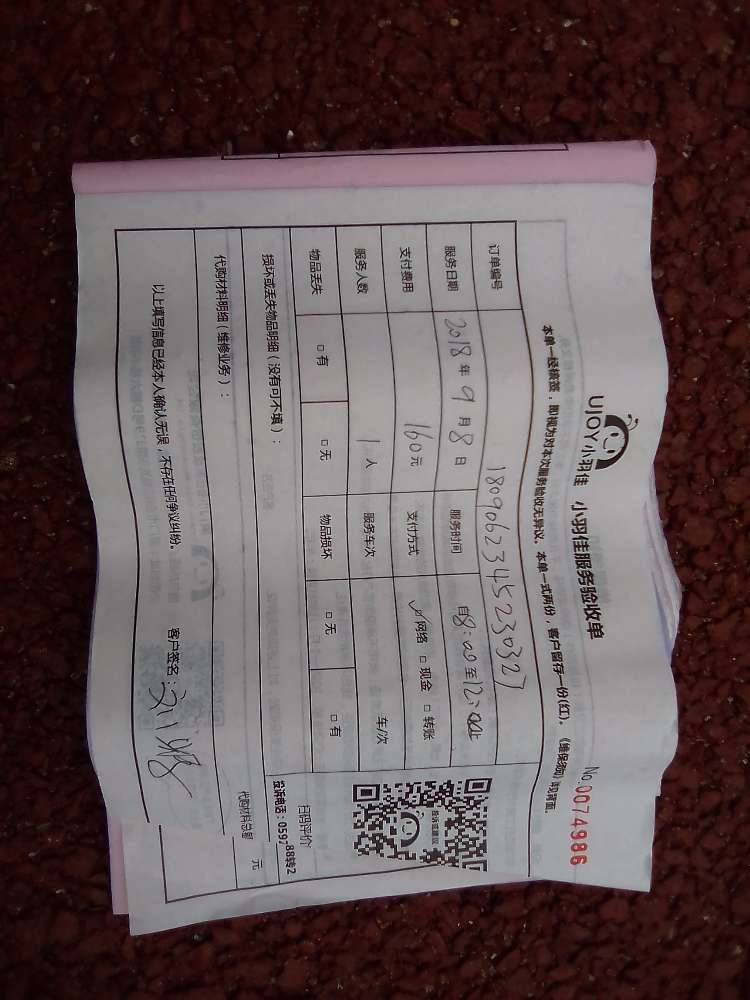 UJOY小羽佳 小羽佳服务验收单
No.0074986
本单一经核签，即视为对本次服务验收无异议。本单一式两份，客户留存一份(红)。《维保须知》见背面。
订单编号 1809062345230327
服务日期 2018年9月8日 服务时间 自8:00至12:00止
支付费用 160元 支付方式 ☑网络 □现金 □转账
服务人数 1人 服务车次 车/次
物品丢失 □有 □无 物品损坏 □无 □有
损坏或丢失物品明细（没有可不填）：
代购材料明细（维修业务）：
代购材料总额 元
以上填写信息已经本人确认无误，不存在任何争议纠纷。 客户签名：
投诉或建议
扫码评价
投诉电话：0592 88转2